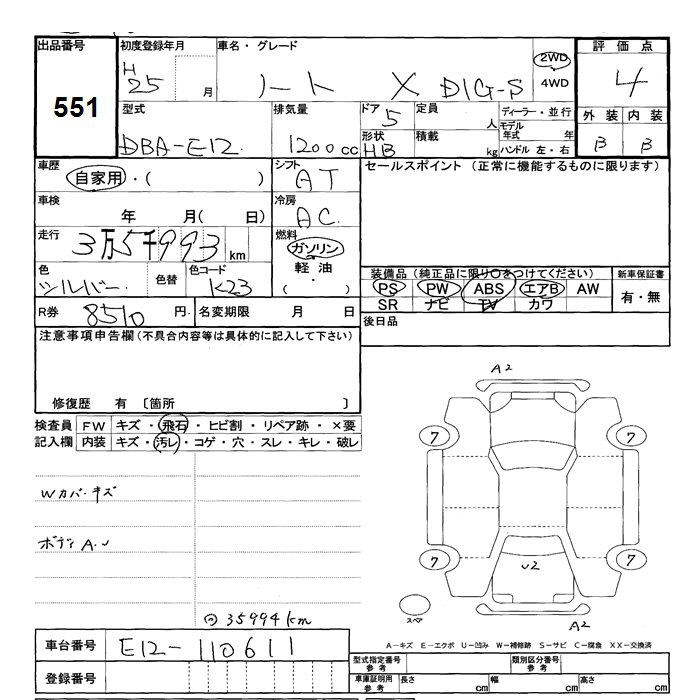 出品番号 初度登録年月 車名・グレード 評価点
551
H25 月 ノート X DIG-S 2WD 4WD 4
型式 排気量 ドア 定員 ディーラー・並行 外装 内装
DBA-E12 1200cc 5 人 モデル年式 年 B B
形状 積載 ハンドル 左・右
HB kg
車歴 シフト セールスポイント (正常に機能するものに限ります)
自家用・( ) AT
車検 冷房
年 月( 日) AC
走行 燃料
3万5千993km ガソリン
色 色替 色コード 軽油 装備品 (純正品に限り○をつけてください) 新車保証書
シルバー K23 ( ・ ) PS PW ABS エアB AW 有・無
SR ナビ TV カワ
R券 8510円 名変期限 月 日 後日品
注意事項申告欄(不具合内容等は具体的に記入して下さい)
修復歴 有 〔箇所 〕
検査員 FW キズ・飛石・ヒビ割・リペア跡・×要
記入欄 内装 キズ・汚レ・コゲ・穴・スレ・キレ・破レ
A2
7 7
Wカバーキズ
ボディ A.U
7 7
U2
スペア
A2
35994km
車台番号 E12-110611
A-キズ E-エクボ U-凹み W-補修跡 S-サビ C-腐食 XX-交換済
型式指定番号 参考 類別区分番号 参考
登録番号
車庫証明用 参考 長さ cm 幅 cm 高さ cm